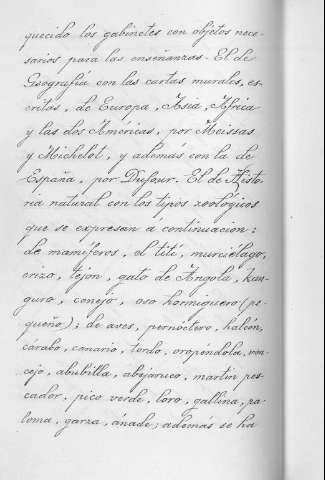 quecido los gabinetes con objetos nece-
sarios para las enseñanzas. El de
Geografía con las cartas murales, es-
critas, de Europa, Asia, Africa
y las dos Américas, por Meissas
y Michelot, y además con la de
España, por Dufour. El de Histo-
ria natural con los tipos zoológicos
que se expresan á continuacion:
de mamíferos, el tití, murciélago,
erizo, tejon, gato de Angola, kan-
guro, conejo, oso hormiguero (pe-
queño); de aves, pernóctero, halcón,
cárabo, canario, tordo, oropéndola, ven-
cejo, abubilla, abejaruco, martin pes-
cador, pico verde, loro, gallina, pa-
loma, garza, ánade; además se ha